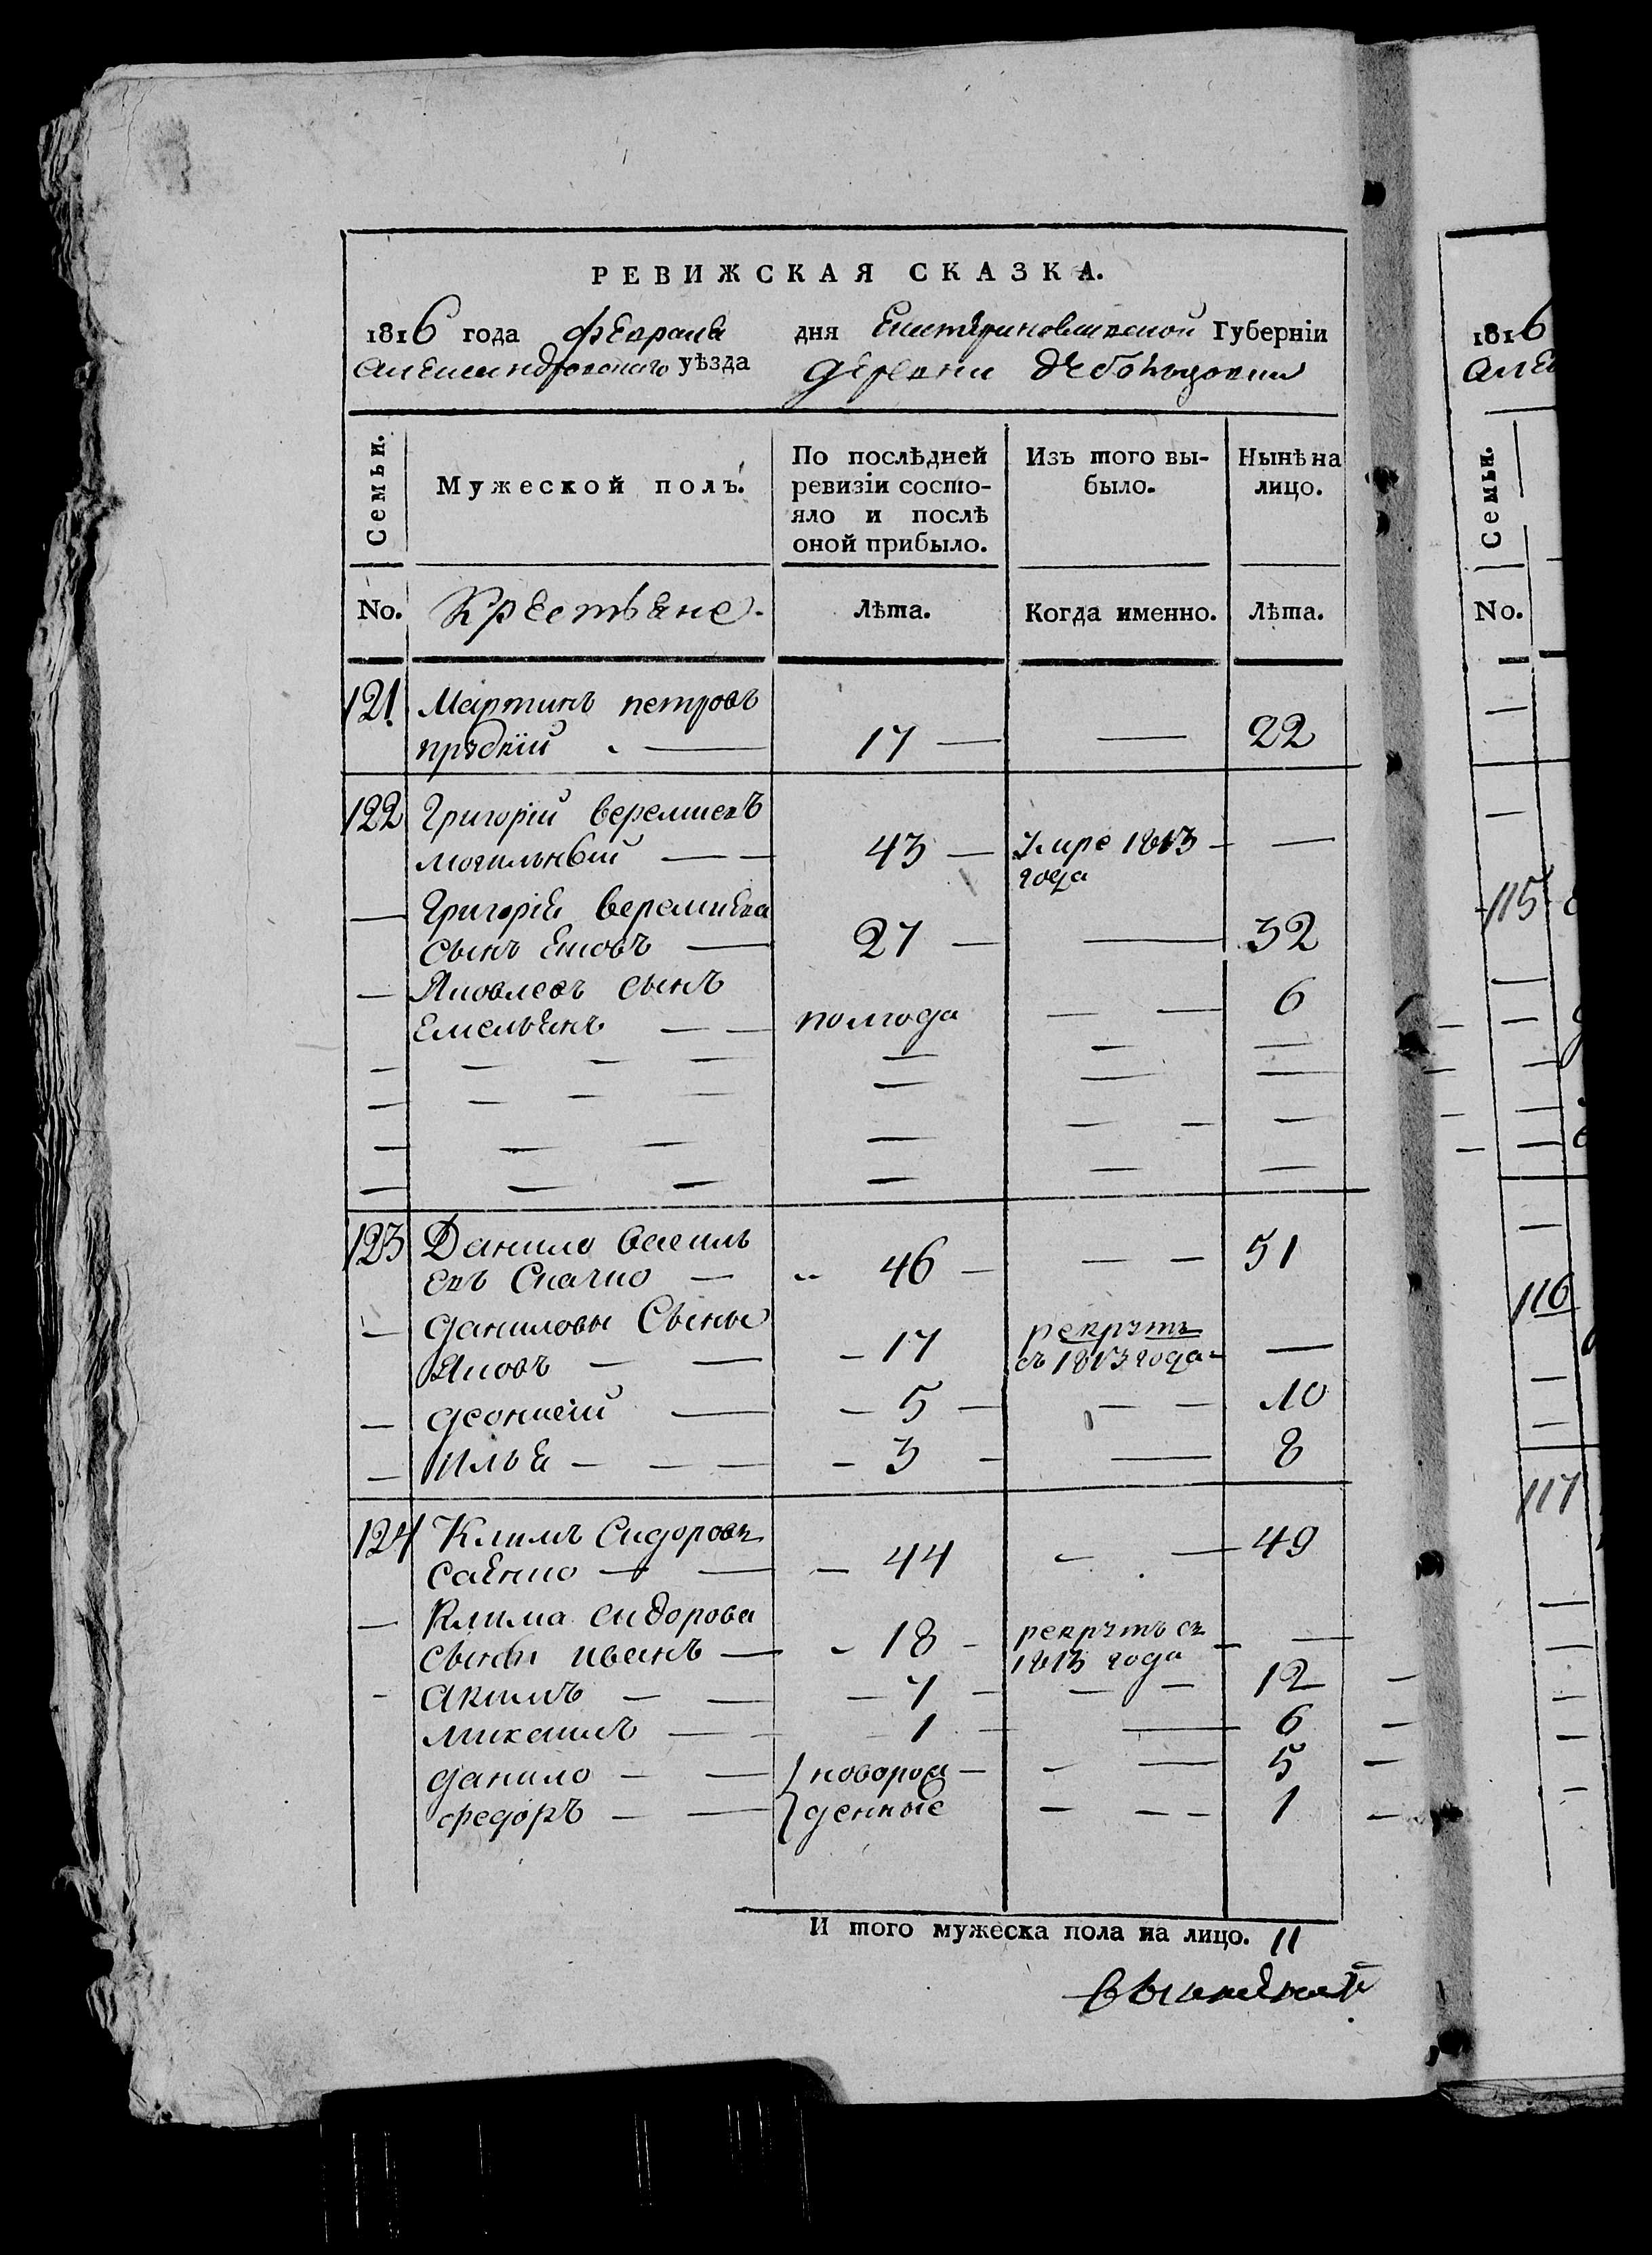 РЕВИЖСКАЯ СКАЗКА.
1816 года февраля дня Екатериновлавской Губернїи
Александровскаго уѣзда деревни
Семьи.
Мужеской полъ.
По послѣдней
ревизїи состо-
яло и послѣ
оной прибыло.
Изъ того вы-
было.
Нынѣ на
лицо.
No. Крестьяне. Лѣта. Когда именно. Лѣта.
121. Мартинъ петровъ
17 — — 22
122 Григорїй веремиевъ
могильный — — 43 — умре 1813 — —
года
— Григорїя веремиева
сынъ яковъ — 27 — — 32
— Яковлевъ сынъ
Емельянъ — — полгода — — 6
123 Данило василь
евъ Скачко — 46 — — — 51
— даниловы Сыны
Яковъ — — — 17 рекрутъ
съ 1813 года — —
— деонисїй — — 5 — — — 10
— Илья — — — — 3 — — 8
124 Климъ Сидоровъ
саенко — — — 44 — — 49
— Клима сидорова
сыны иванъ — — 18 — рекрутъ съ
1813 года — —
- акимъ — — — 7 — — — 12
михаилъ — — 1 — — 6
данило — — новорож — — — 5
федоръ — — денные — — — 1
И того мужеска пола на лицо. 11
1816
No.
Семьи.
115
116
117